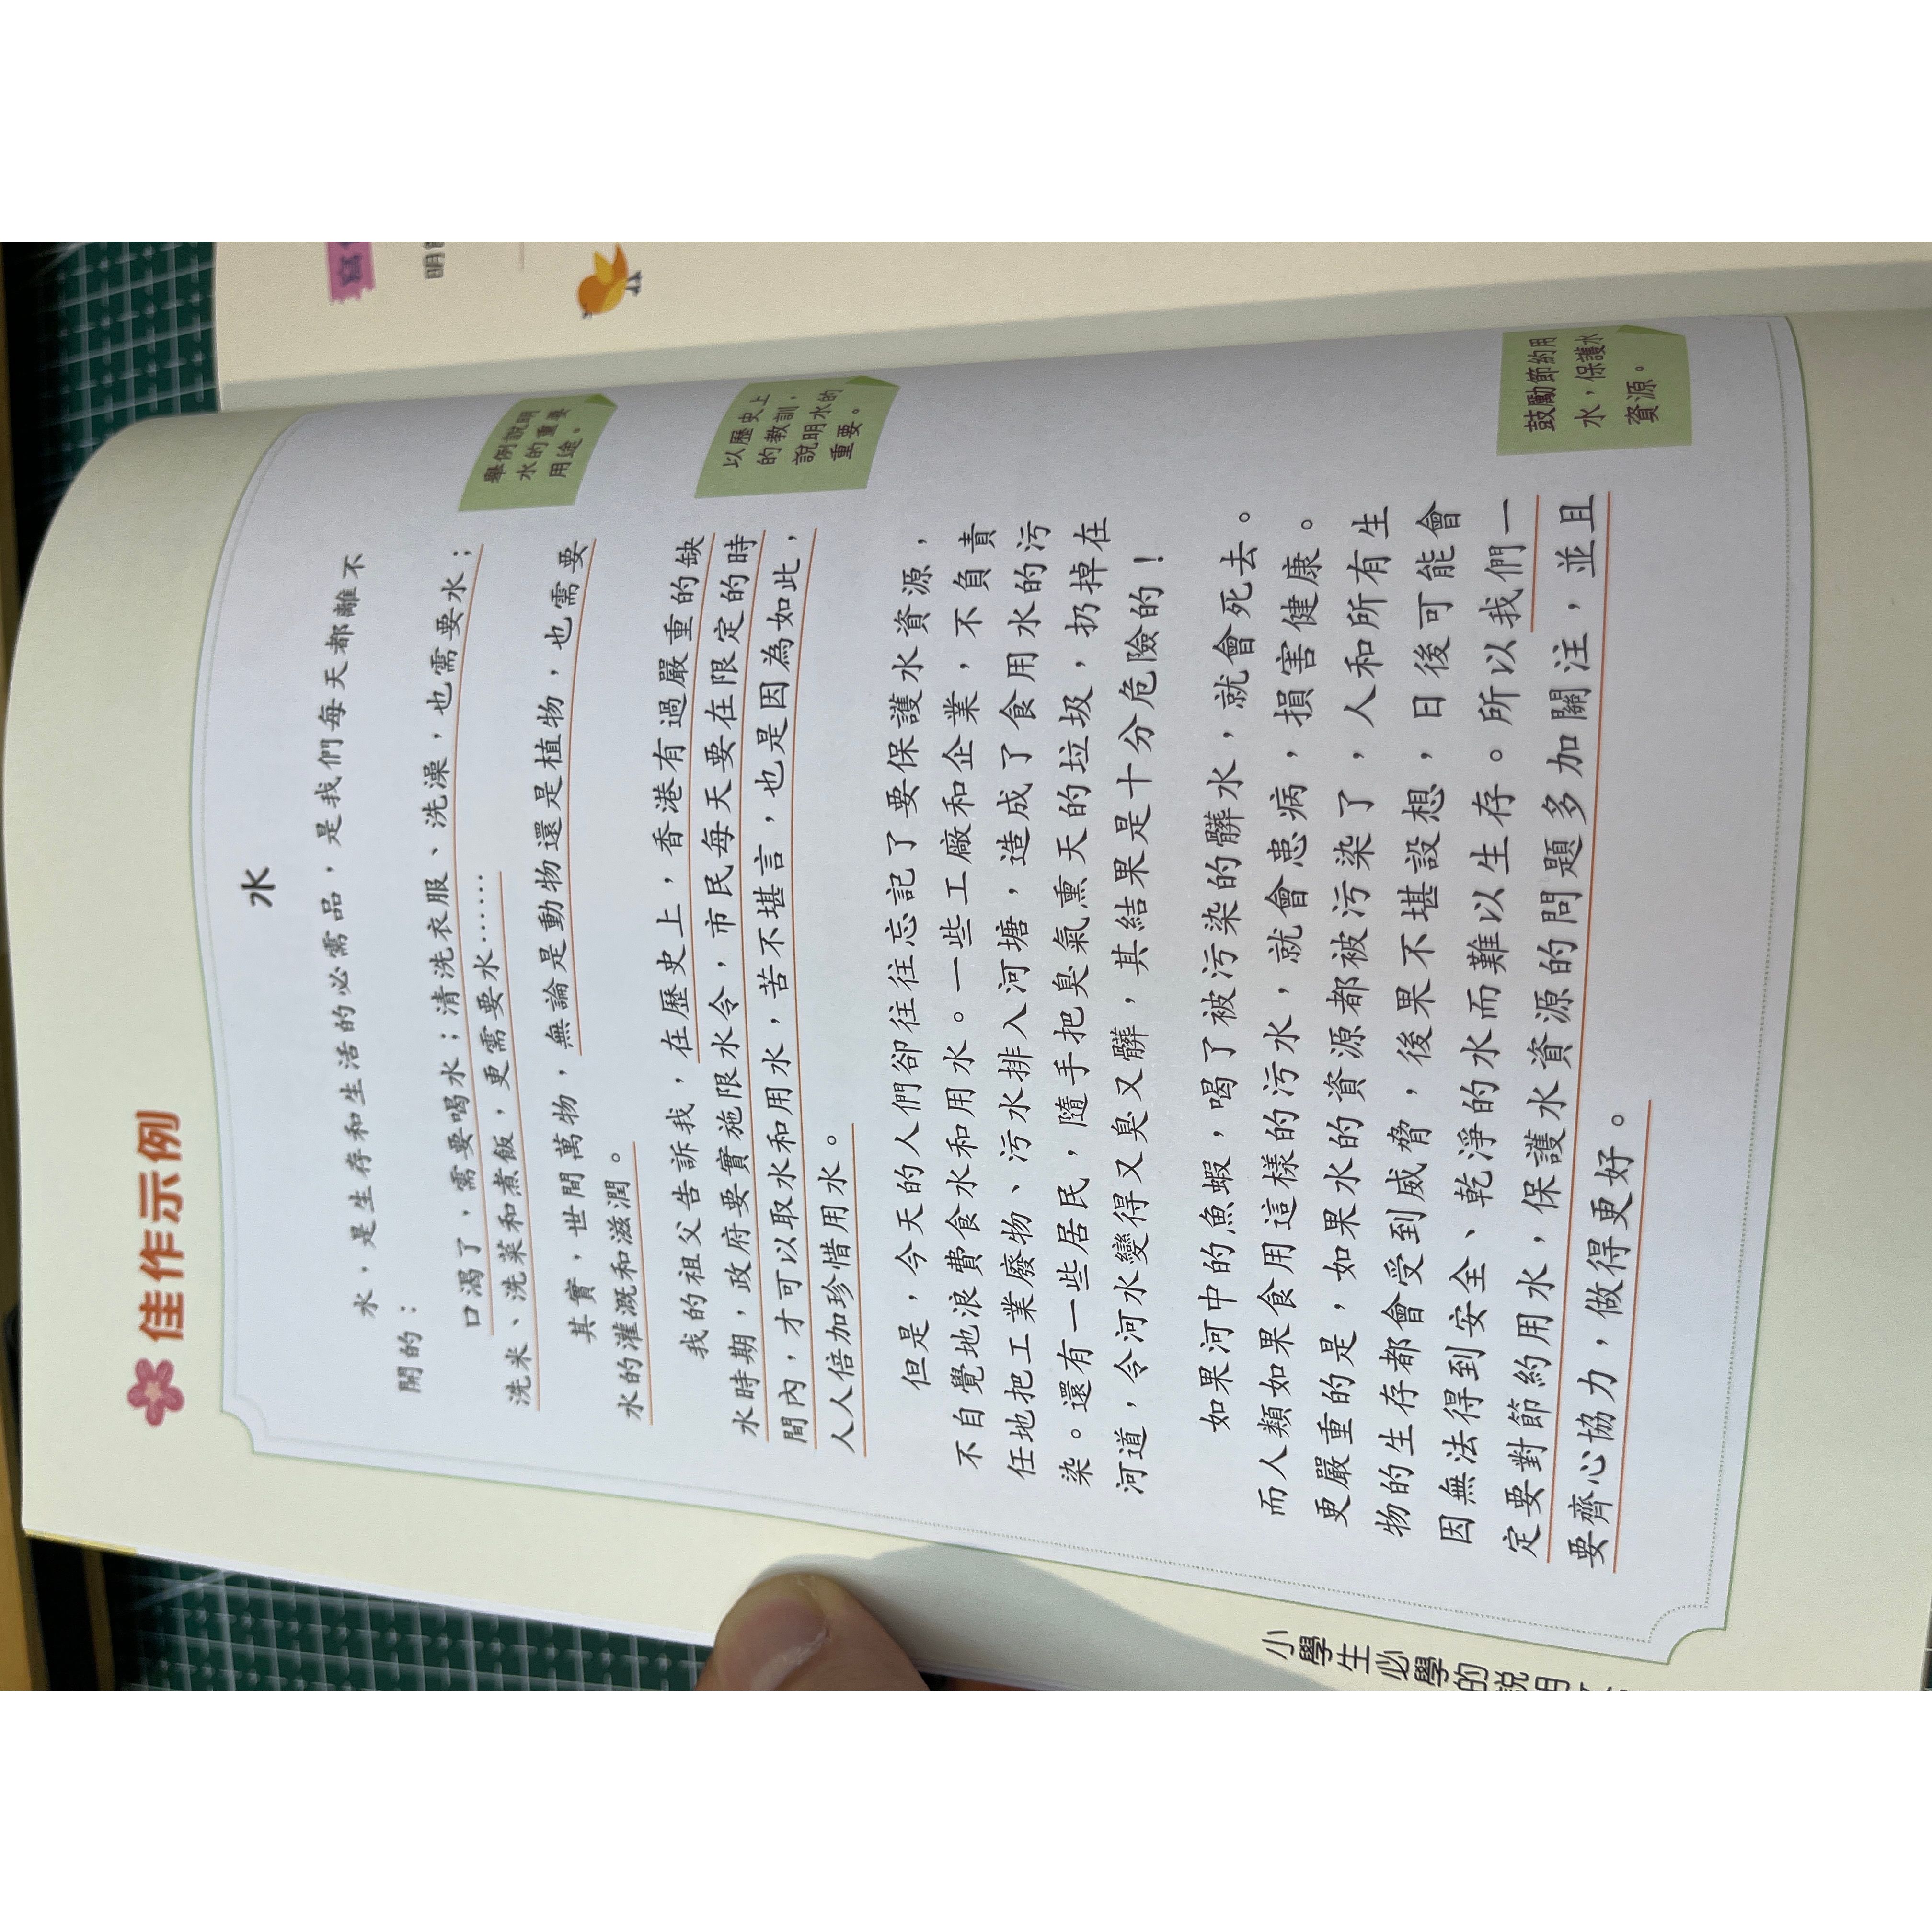 佳作示例
水
水，是生存和生活的必需品，是我們每天都離不
開的：
口渴了，需要喝水；清洗衣服、洗澡，也需要水；
洗米、洗菜和煮飯，更需要水……
其實，世間萬物，無論是動物還是植物，也需要
水的灌溉和滋潤。
我的祖父告訴我，在歷史上，香港有過嚴重的缺
水時期，政府要實施限水令，市民每天要在限定的時
間內，才可以取水和用水，苦不堪言，也是因為如此，
人人倍加珍惜用水。
但是，今天的人們卻往往忘記了要保護水資源，
不自覺地浪費食水和用水。一些工廠和企業，不負責
任地把工業廢物、污水排入河塘，造成了食用水的污
染。還有一些居民，隨手把臭氣熏天的垃圾，扔掉在
河道，令河水變得又臭又髒，其結果是十分危險的！
如果河中的魚蝦，喝了被污染的髒水，就會死去。
而人類如果食用這樣的污水，就會患病，損害健康。
更嚴重的是，如果水的資源都被污染了，人和所有生
物的生存都會受到威脅，後果不堪設想，日後可能會
因無法得到安全、乾淨的水而難以生存。所以我們一
定要對節約用水，保護水資源的問題多加關注，並且
要齊心協力，做得更好。
舉例說明
水的重要
用途。
以歷史上
的教訓，
說明水的
重要。
鼓勵節約用
水，保護水
資源。
小學生必學的說明
寫
明